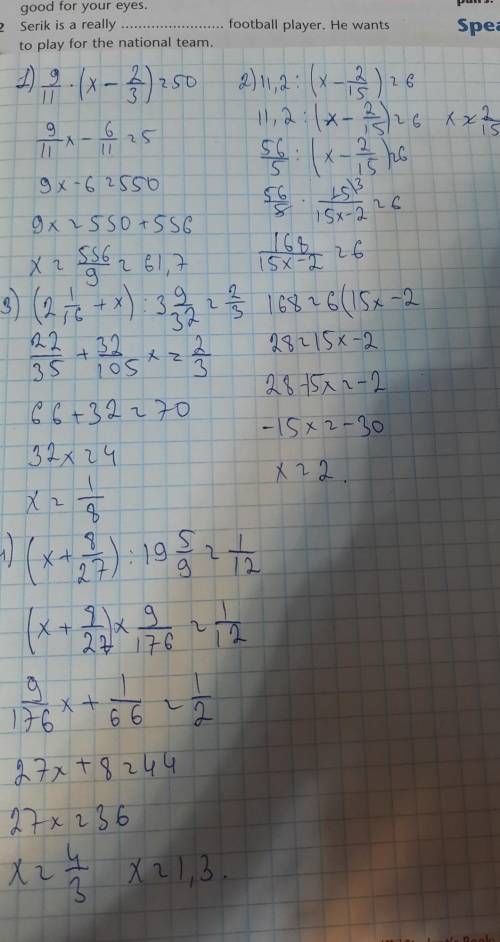 good for your eyes.
2 Serik is a really ........................ football player. He wants
to play for the national team.
Spea
1) 9/11 · (x − 2/3) = 50
9/11 x − 6/11 = 5
9x − 6 = 550
9x = 550 + 556
x = 556/9 = 61,7
2) 11,2 : (x − 2/15) = 6
11,2 : (x − 2/15) = 6 x ≠ 2/15
56/5 : (x − 2/15) = 6
56/5 · 15/15x−2 = 6
168/15x−2 = 6
168 = 6(15x − 2
28 = 15x − 2
28 − 15x = −2
−15x = −30
x = 2.
3) (2 1/16 + x) : 3 9/32 = 2/3
22/35 + 32/105 x = 2/3
66 + 32 = 70
32x = 4
x = 1/8
(x + 8/27) : 19 5/9 = 1/12
(x + 8/27) × 9/176 = 1/12
9/176 x + 1/66 = 1/2
27x + 8 = 44
27x = 36
x = 4/3 x = 1,3.